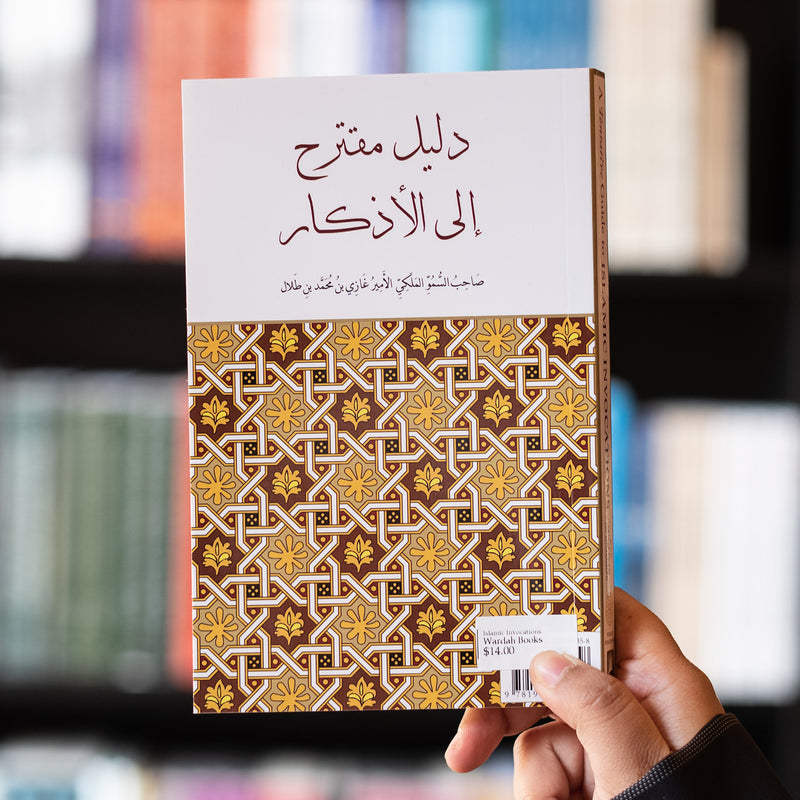 دليل مقترح
إلى الأذكار
صَاحِبُ السُّمُوِّ المَلَكِيِّ الأَمِيرُ غَازِي بنُ مُحَمَّد بنِ طَلال
A Tentative Guide to ISLAMIC INVOCATIONS
Islamic Invocations
Wardah Books
$14.00
35-8
9 7819